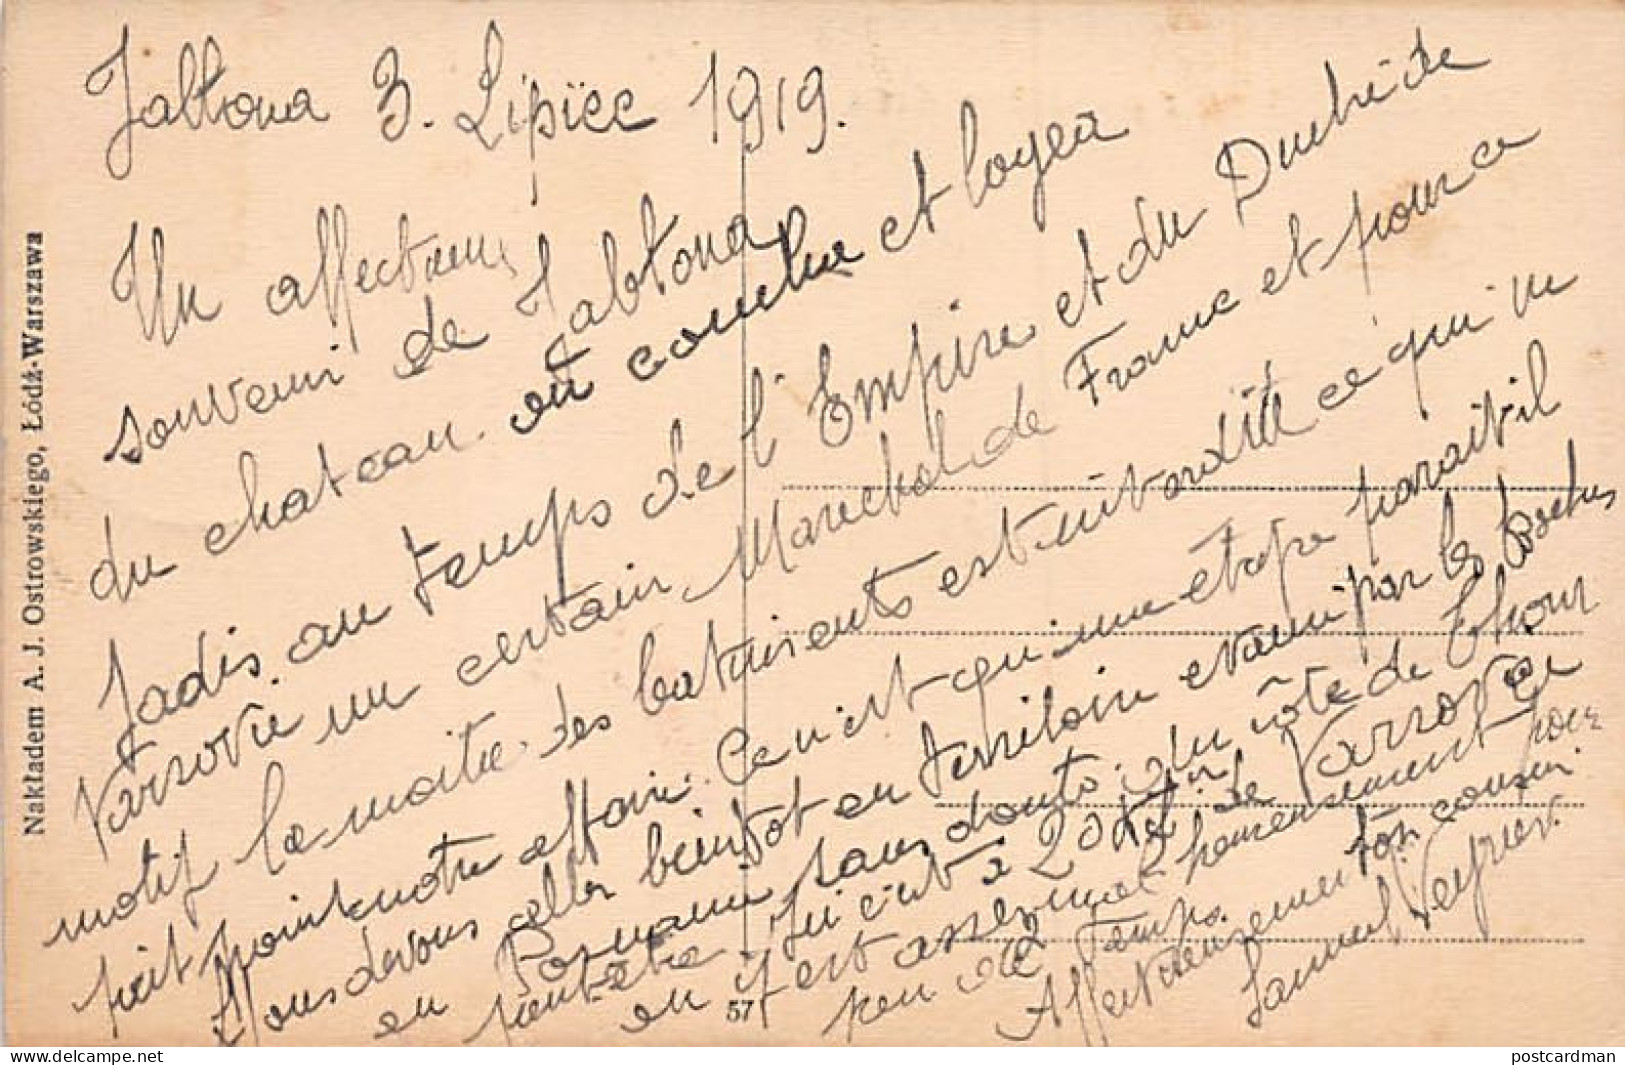 Jabłona 3. Lipiec 1919.
Un affectueux
souvenir de Jabłona
du chateau où coucha et logea
Jadis au temps de l'Empire et du Duché de
Varsovie un certain Marechal de France et pour ce
motif la moitie des batiments est interdite ce qui ne
fait point notre affaire. Ce n'est qu'une etape parait-il
Nous devons aller bientot en territoire evacué par les boches
en Posnanie sans doute. du côté de Thorn
peut-etre. Ici c'est à 20 de Varsovie
on y est assez mal heureusement pour
peu de temps.
Affectueusement ton cousin
Samuel Veyrier.
Nakładem A. J. Ostrowskiego, Łódź-Warszawa
57
postcardman